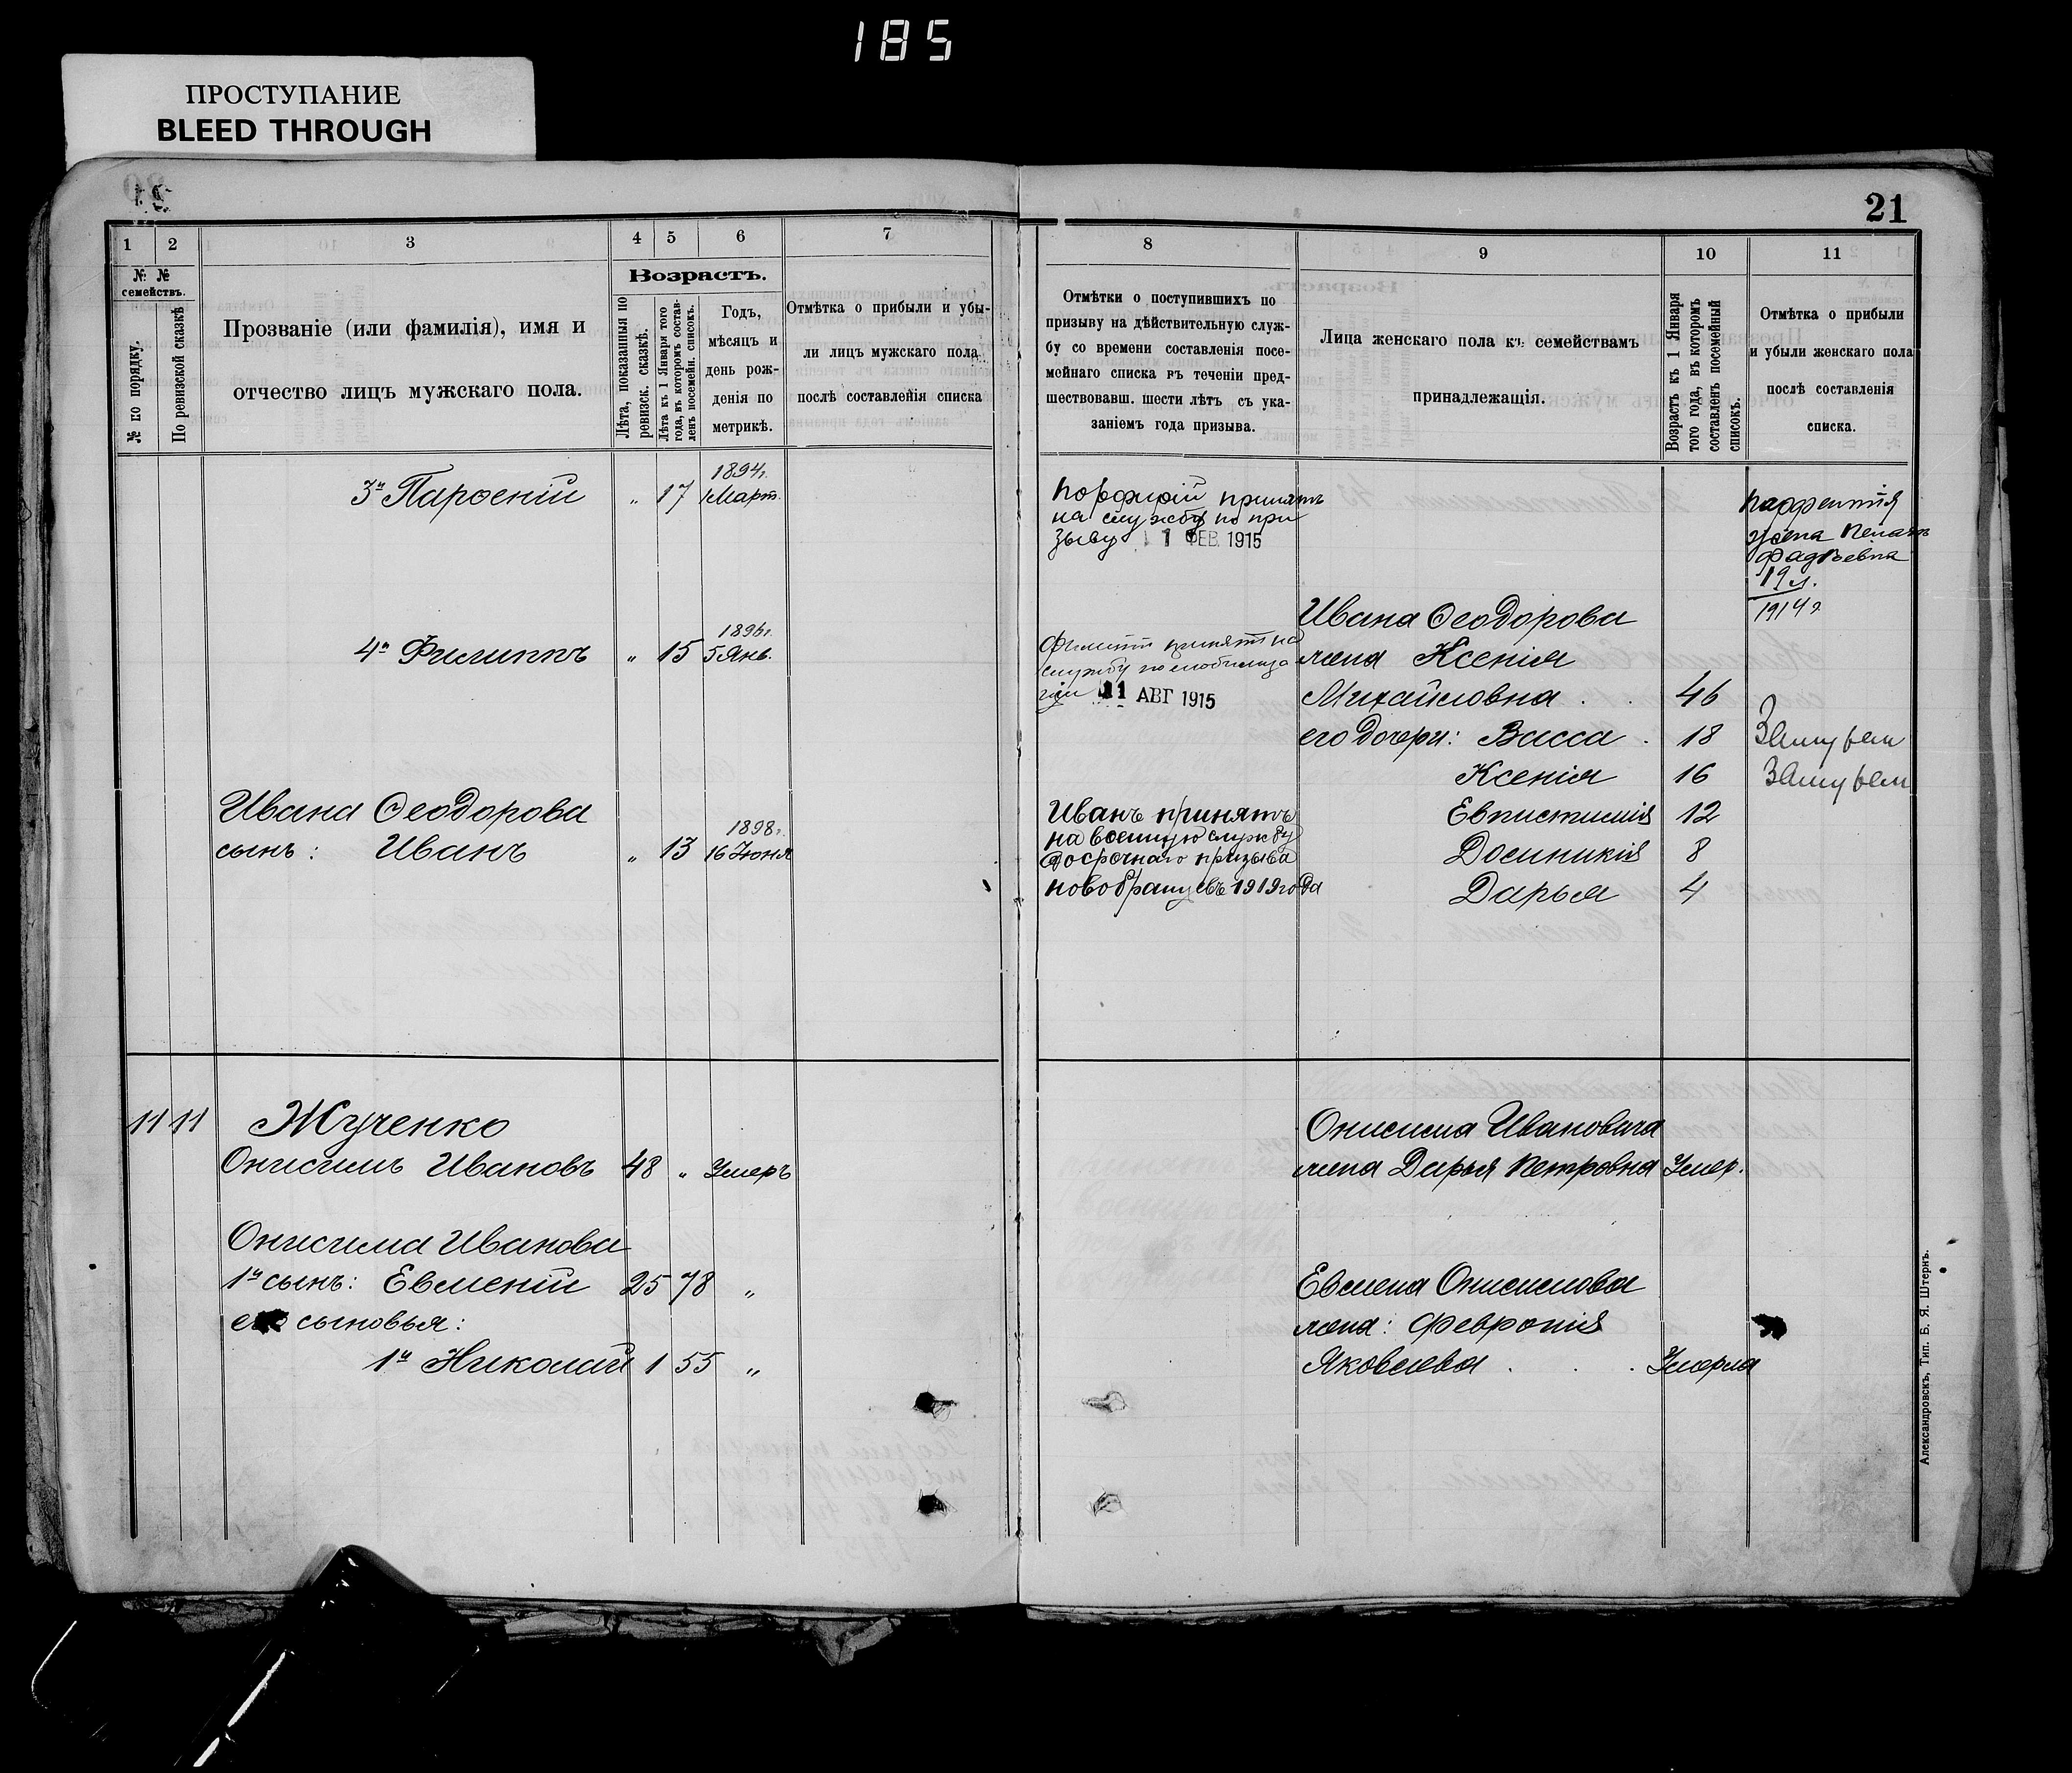 185
ПРОСТУПАНИЕ
BLEED THROUGH
21
1 2 3 4 5 6 7
№ № семействъ.
№ по порядку.
По ревизской сказкѣ
Прозваніе (или фамилія), имя и
отчество лицъ мужскаго пола.
Возрастъ.
Лѣта, показанныя по
ревизск. сказкѣ.
Лѣта къ 1 Января того
года, въ которомъ состав-
ленъ посемейн. списокъ.
Годъ,
мѣсяцъ и
день рож-
денія по
метрикѣ.
Отмѣтка о прибыли и убы-
ли лицъ мужскаго пола
послѣ составленія списка
3й Парѳеній „ 17 1894г.
1 Март.
4й Филиппъ „ 15 1896г.
5 Янв.
Ивана Ѳеодорова
сынъ: Иванъ „ 13 1898г.
16 Іюня
11 11 Жученко
Онисимъ Ивановъ 48 „ Умеръ
Онисима Иванова
1й сынъ: Евменій 25 78 „
его сыновья:
1й Николай 1 55 „
8 9 10 11
Отмѣтки о поступившихъ по
призыву на дѣйствительную служ-
бу со времени составленія посе-
мейнаго списка въ теченіи пред-
шествовавш. шести лѣтъ съ ука-
заніемъ года призыва.
Лица женскаго пола къ семействамъ
принадлежащія.
Возрастъ къ 1 Января
того года, въ которомъ
составленъ посемейный
списокъ.
Отмѣтка о прибыли
и убыли женскаго пола
послѣ составленія
списка.
принятъ
на службу по при
зыву 1 ФЕВ. 1915
жена
Фадѣевна
19 л.
1914 г
Филиппъ принятъ на
службу по мобилиза
ціи 11 АВГ 1915
Ивана Ѳеодорова
жена Ксенія
Михайловна . . 46
его дочери: Васса . 18 Замужем
Ксенія 16 Замужем
Евпистимія 12
Домникія 8
Дарья 4
Иванъ принятъ
на военную службу
досрочнаго призыва
новобранцевъ 1919 года
Онисима Ивановича
жена Дарья Петровна Умер.
Евмена Онисимова
жена: Февронія
Яковлева . . . Умерла
Александровскъ, Тип. Б. Я. Штернъ.